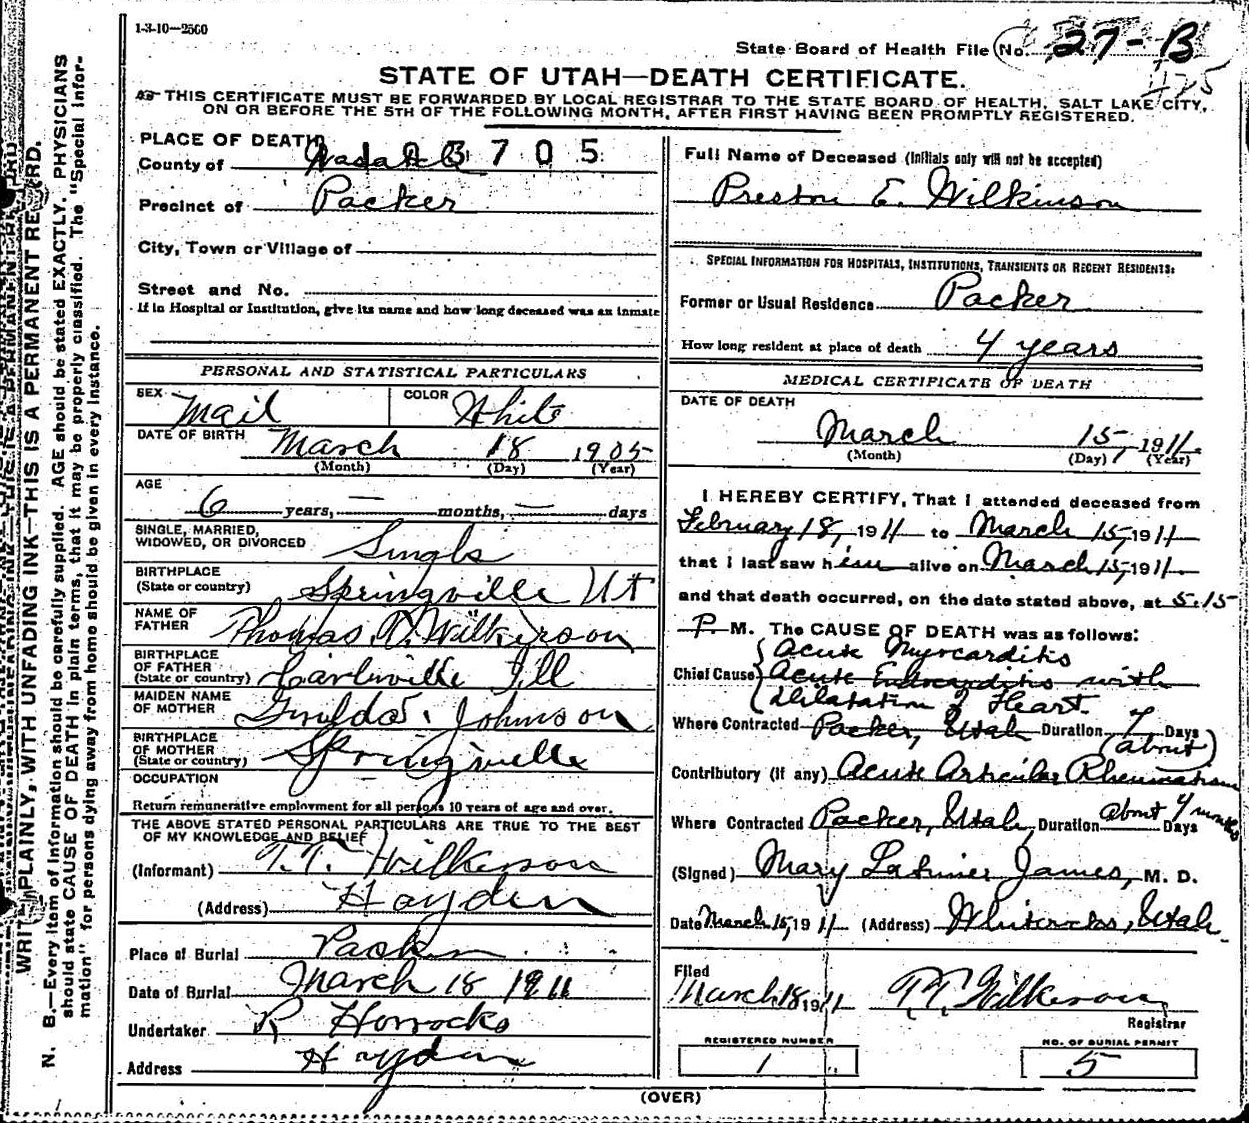 1-3-10—2500
State Board of Health File No. 27-B
425
STATE OF UTAH—DEATH CERTIFICATE.
THIS CERTIFICATE MUST BE FORWARDED BY LOCAL REGISTRAR TO THE STATE BOARD OF HEALTH, SALT LAKE CITY,
ON OR BEFORE THE 5TH OF THE FOLLOWING MONTH, AFTER FIRST HAVING BEEN PROMPTLY REGISTERED.
PLACE OF DEATH
County of 3705
Precinct of Packer
City, Town or Village of
Street and No.
If in Hospital or Institution, give its name and how long deceased was an inmate
PERSONAL AND STATISTICAL PARTICULARS
SEX Mail COLOR White
DATE OF BIRTH March 18 1905
(Month) (Day) (Year)
AGE
6 years, — months, — days
SINGLE, MARRIED,
WIDOWED, OR DIVORCED Single
BIRTHPLACE
(State or country) Springville Ut
NAME OF
FATHER Thomas T. Wilkinson
BIRTHPLACE
OF FATHER
(State or country) Carlinville Ill
MAIDEN NAME
OF MOTHER Johnson
BIRTHPLACE
OF MOTHER
(State or country) Springville
OCCUPATION
Return remunerative employment for all persons 10 years of age and over.
THE ABOVE STATED PERSONAL PARTICULARS ARE TRUE TO THE BEST
OF MY KNOWLEDGE AND BELIEF
(Informant) T.T. Wilkerson
(Address) Hayden
Place of Burial Packer
Date of Burial March 18 1911
Undertaker R Horrocks
Address Hayden
Full Name of Deceased (Initials only will not be accepted)
Preston E. Wilkinson
SPECIAL INFORMATION FOR HOSPITALS, INSTITUTIONS, TRANSIENTS OR RECENT RESIDENTS:
Former or Usual Residence Packer
How long resident at place of death 4 years
MEDICAL CERTIFICATE OF DEATH
DATE OF DEATH
March 15, 1911
(Month) (Day) (Year)
I HEREBY CERTIFY, That I attended deceased from
February 18, 1911 to March 15, 1911
that I last saw him alive on March 15, 1911
and that death occurred, on the date stated above, at 5.15
P. M. The CAUSE OF DEATH was as follows:
Acute Myocarditis
Chief Cause Acute Endocarditis with
Dilatation of Heart.
Where Contracted Packer, Utah Duration 7 Days
(about)
Contributory (if any) Acute Articular Rheumatism
Where Contracted Packer, Utah, Duration about 4 months Days
(Signed) Mary Latimer James, M. D.
Date March 15, 1911 (Address) Whiterocks, Utah.
Filed
March 18 1911 T.T. Wilkerson
Registrar
REGISTERED NUMBER
1
NO. OF BURIAL PERMIT
5
(OVER)
WRITE PLAINLY, WITH UNFADING INK—THIS IS A PERMANENT RECORD.
N. B.—Every item of information should be carefully supplied. AGE should be stated EXACTLY. PHYSICIANS
should state CAUSE OF DEATH in plain terms, that it may be properly classified. The "Special Infor-
mation" for persons dying away from home should be given in every instance.